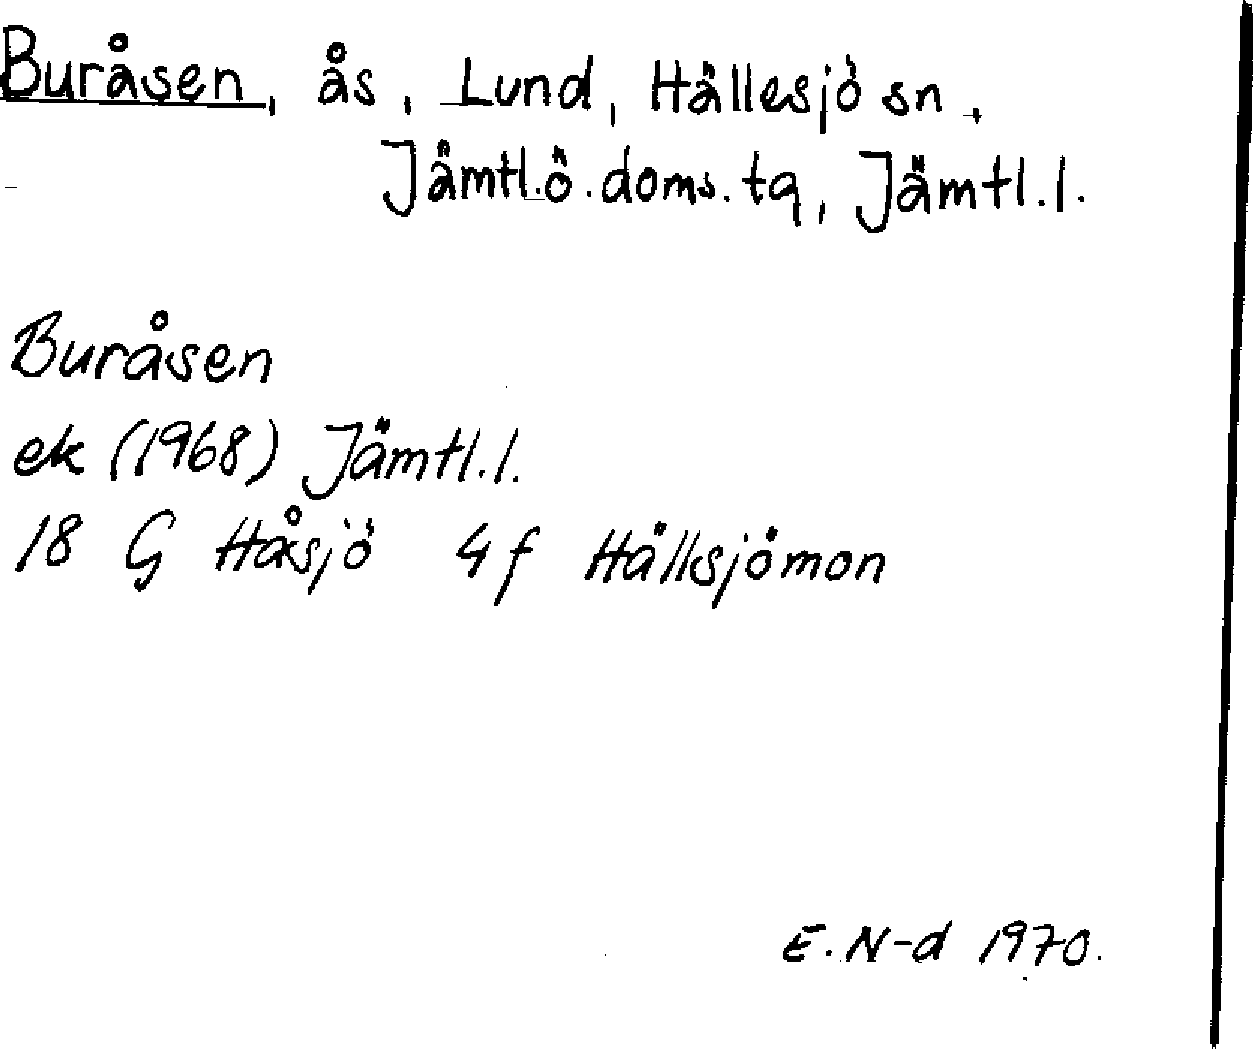 Buråsen, ås, Lund, Hällesjö sn,
Jämtl.ö.doms.tg, Jämtl.l.
Buråsen
ek (1968) Jämtl.l.
18 G Håsjö 4f Hällsjömon
E.N-d 1970.